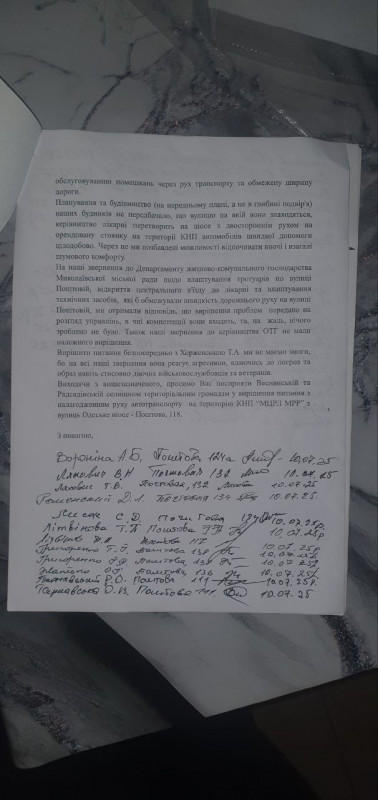 обслуговуванни помешкань через рух транспорту та обмежену ширину
дороги.
Планування та будівництво (на передньому плані, а не в глибині подвір'я)
наших будинків не передбачало, що вулицю на якій вони знаходяться,
керівництво лікарні перетворить на шосе з двостороннім рухом на
орендовану стоянку на території КНП автомобілів швидкої допомоги
цілодобово. Через це ми позбавлені можливості відпочивати вночі і взагалі
шумового комфорту.
На наші звернення до Департаменту житлово-комунального господарства
Миколаївської міської ради щодо влаштування тротуарів по вулиці
Поштовій, відкриття центрального в'їзду до лікарні та влаштування
технічних засобів, які б обмежували швидкість дорожнього руху на вулиці
Поштовій, ми отримали відповідь, що вирішення проблем передано на
розгляд управлінь, в чиї компетенції вони входять, та, на жаль, нічого
зроблено не було. Також наші звернення до керівництва ОТГ не мали
належного вирішення.
Вирішити питання безпосередньо з Херженською Т.А. ми не маємо змоги,
бо на всі наші звернення вона реагує агресивно, вдаючись до погроз та
образ навіть стосовно діючих військовослужбовців та ветеранів.
Виходячи з вищезазначеного, просимо Вас посприяти Веснянській та
Радсадівській селищним територіальним громадам у вирішенні питання з
налагодженням руху автотранспорту на територію КНП "МЦРЛ МРР" з
вулиць Одеське шосе - Поштова, 118.
З повагою,
Вороніна А.Б, Поштова 124а 10.07.25
Лянович В.Н Поштовая 132 10.07.25
Лянович Т.В. Поштовая, 132 10.07.25
Д.Л. Поштовая 134 10.07.25
С.Д. Поштова 10.07.25р.
Літвінова Т.П Поштова 10.07.25
Поштова 117 10.07.25р.
Григоренко Т.Г. Поштова 138 10.07.25р.
Григоренко Поштова 138 10.07.25р.
О.Г. Поштова 136 10.07.25
Р.О. Поштова 111 10.07.25р.
Тарнавська О.В. Поштова 111 10.07.25